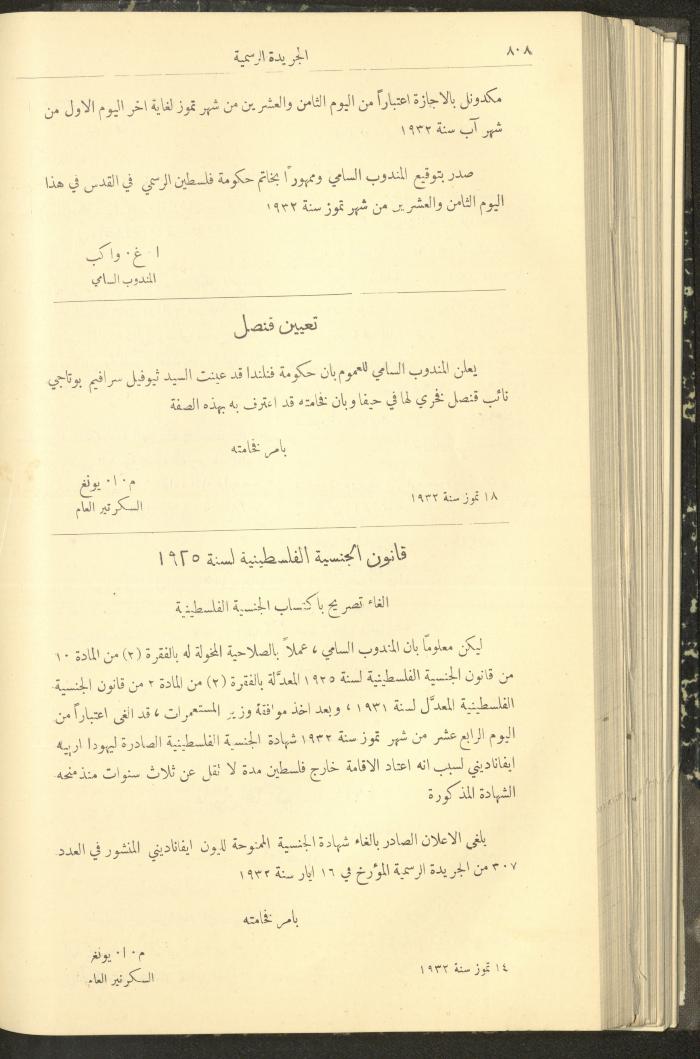 ٨٠٨
الجريدة الرسمية
مكدونل بالاجازة اعتباراً من اليوم الثامن والعشرين من شهر تموز لغاية اخر اليوم الاول من
شهر آب سنة ١٩٣٢
صدر بتوقيع المندوب السامي وممهوراً بخاتم حكومة فلسطين الرسمي في القدس في هذا
اليوم الثامن والعشرين من شهر تموز سنة ١٩٣٢
ا٠ غ٠ واكب
المندوب السامي
تعيين قنصل
يعلن المندوب السامي للعموم بان حكومة فنلندا قد عينت السيد ثيوفيل سرافيم بوتاجي
نائب قنصل فخري لها في حيفا وبان فخامته قد اعترف به بهذه الصفة
بامر فخامته
م٠ا٠ يونغ
السكرتير العام
١٨ تموز سنة ١٩٣٢
قانون الجنسية الفلسطينية لسنة ١٩٢٥
الغاء تصريح باكتساب الجنسية الفلسطينية
ليكن معلوماً بان المندوب السامي ، عملاً بالصلاحية المخولة له بالفقرة (٢) من المادة ١٠
من قانون الجنسية الفلسطينية لسنة ١٩٢٥ المعدَّلة بالفقرة (٢) من المادة ٢ من قانون الجنسية
الفلسطينية المعدَّل لسنة ١٩٣١ ، وبعد اخذ موافقة وزير المستعمرات ، قد الغى اعتباراً من
اليوم الرابع عشر من شهر تموز سنة ١٩٣٢ شهادة الجنسية الفلسطينية الصادرة ليهودا اربيه
ايفاناديني لسبب انه اعتاد الاقامة خارج فلسطين مدة لا تقل عن ثلاث سنوات منذ منحه
الشهادة المذكورة
يلغى الاعلان الصادر بالغاء شهادة الجنسية الممنوحة لليون ايفاناديني المنشور في العدد
٣٠٧ من الجريدة الرسمية المؤرخ في ١٦ ايار سنة ١٩٣٢
بامر فخامته
م٠ا٠ يونغ
السكرتير العام
١٤ تموز سنة ١٩٣٢